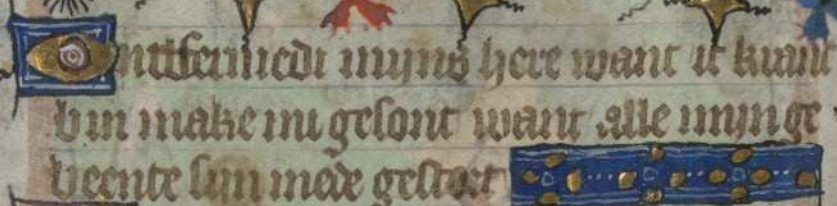 Ontfermedi mijns here want ic kranc
bin make mi gesont want alle mijn ge
beente sijn mede gestort